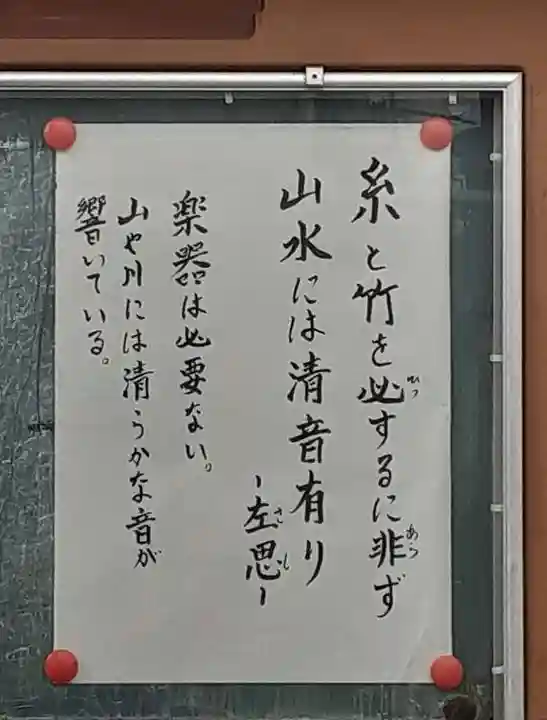 糸と竹を必するに非ず
山水には清音有り
-左思-
楽器は必要ない。
山や川には清らかな音が
響いている。